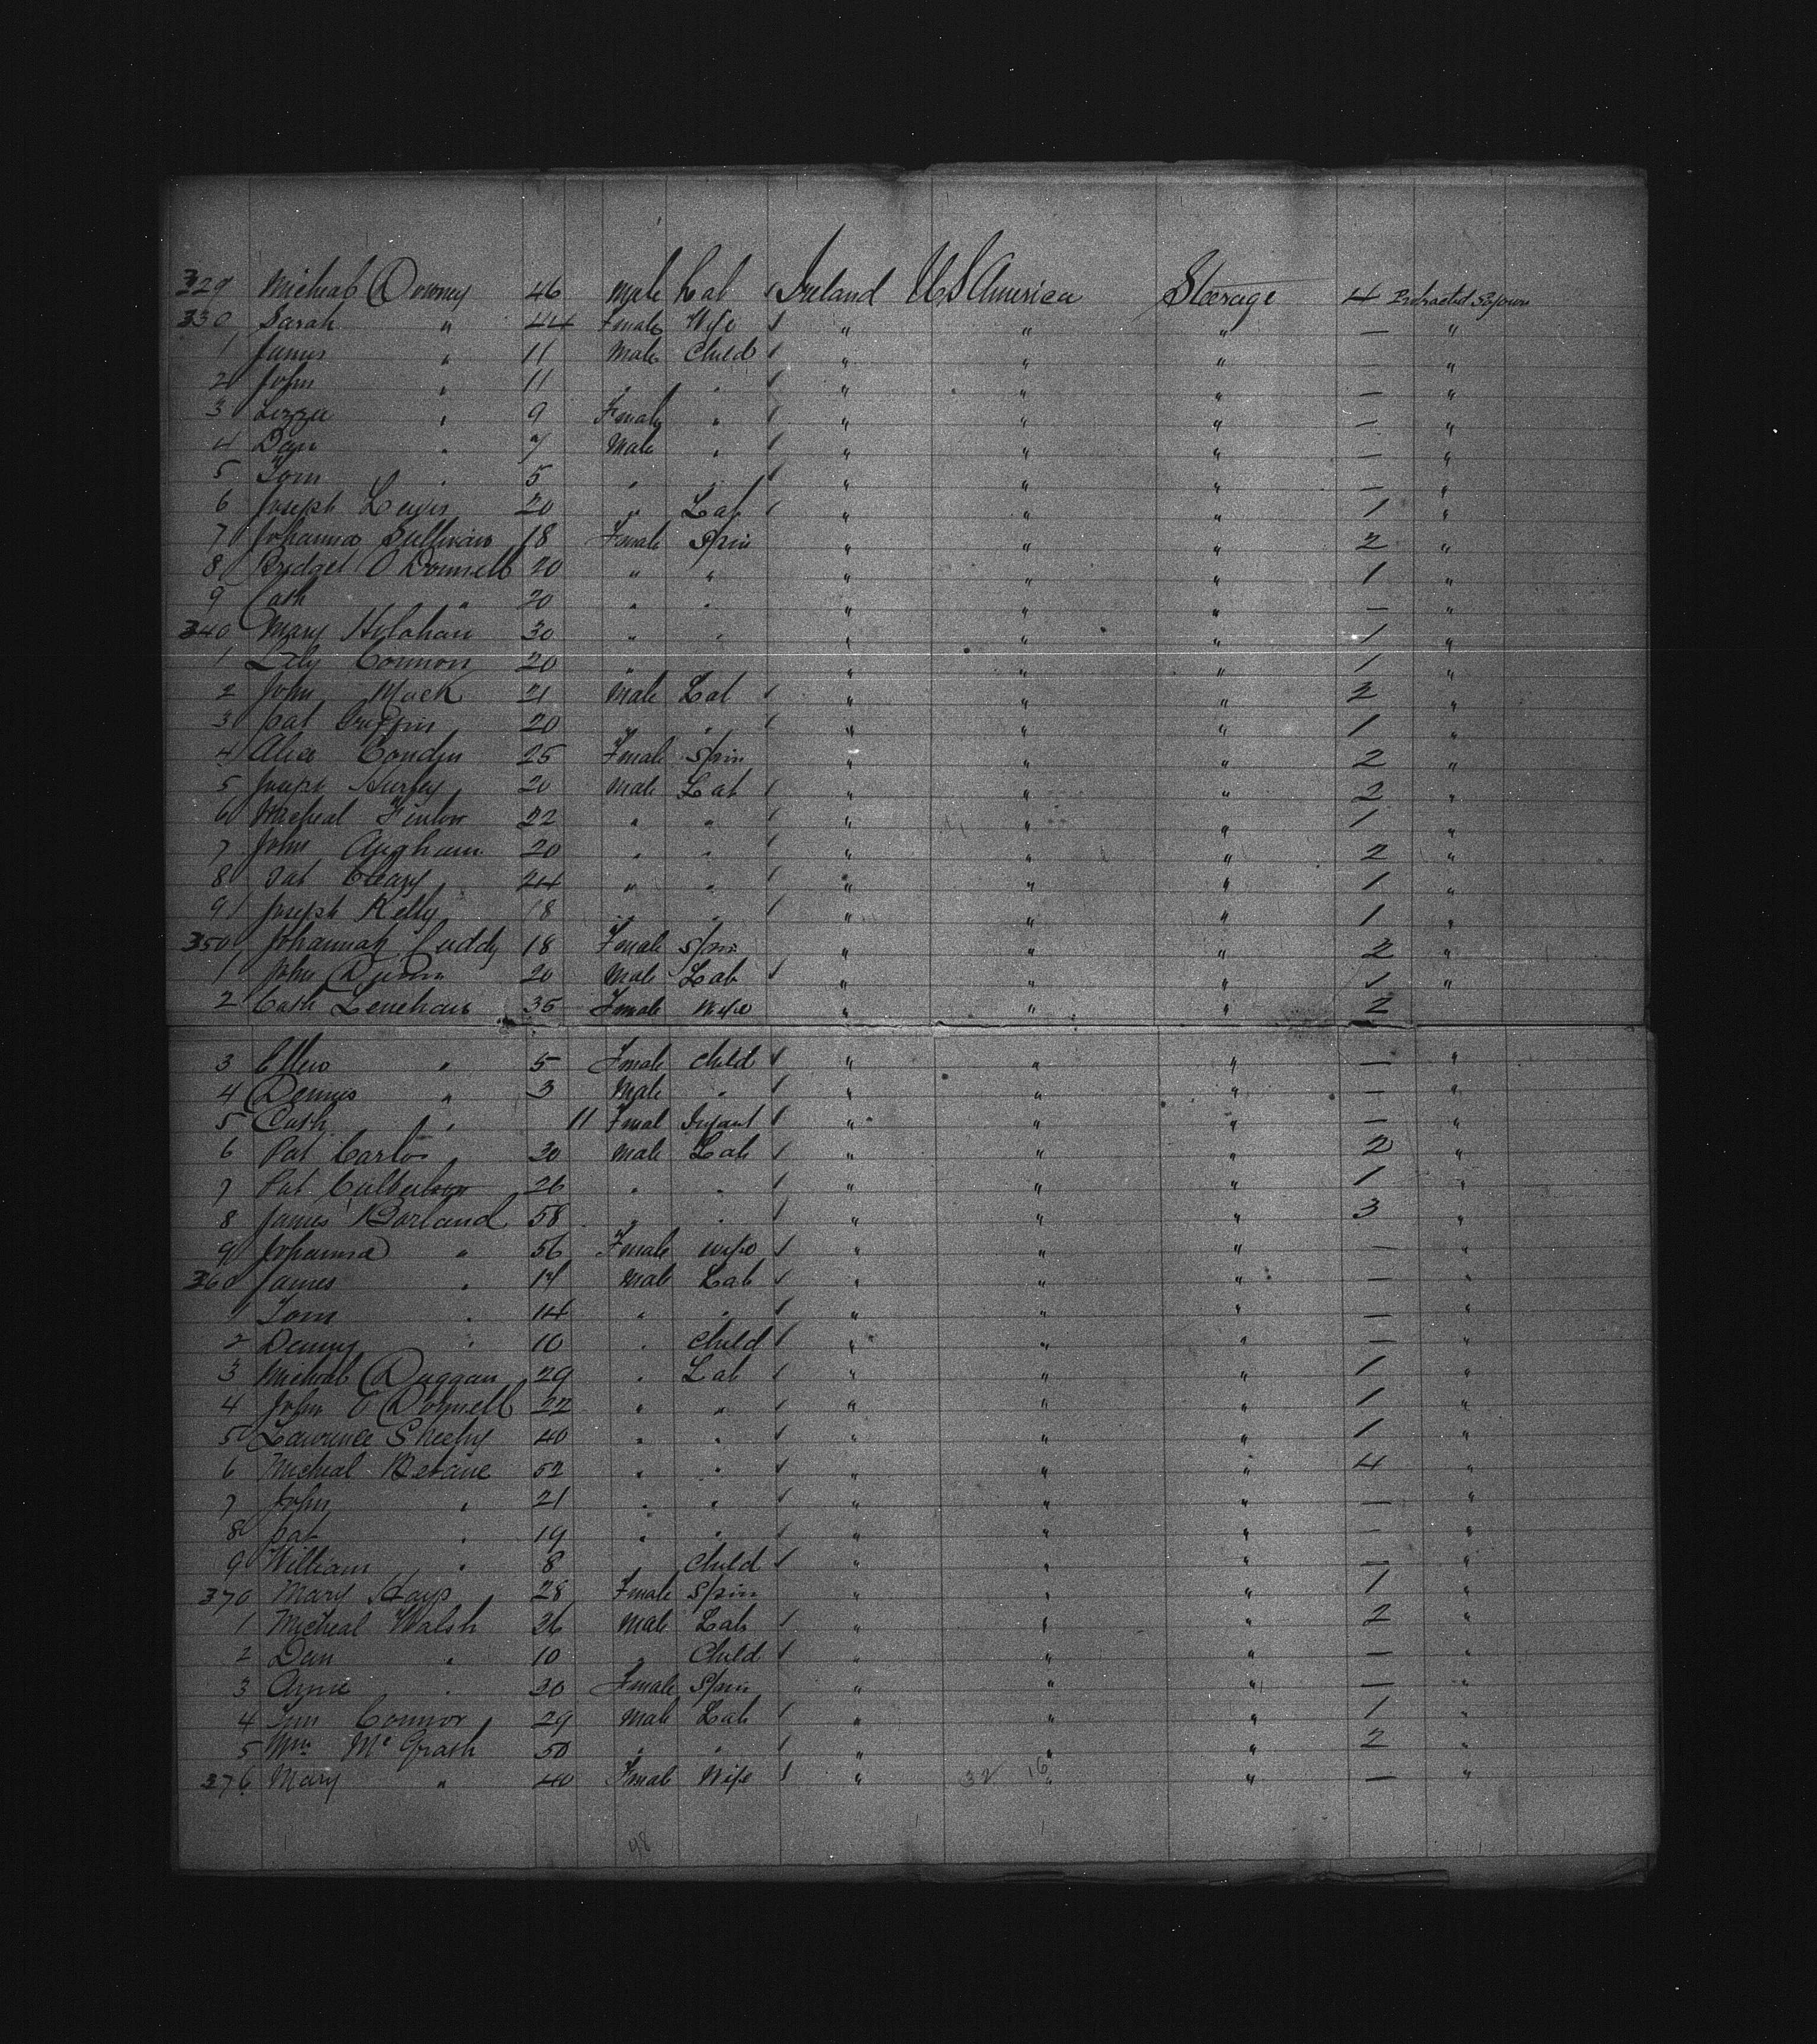 329 Micheal Downey 46 Male Lab Ireland U.S America Steerage 4 Protracted Sojourn
330 Sarah " 44 Female Wife " " " — "
1 James " 11 Male Child " " " — "
2 John " 11 " " " " " — "
3 Lizzie " 9 Female " " " " — "
4 Dan " 7 Male " " " " — "
5 Tom " 5 " " " " " — "
6 Joseph 20 " Lab " " " 1 "
7 Johanna Sullivan 18 Female Spin " " " 2 "
8 Bridget O Donnell 20 " " " " " 1 "
9 Cath " 20 " " " " " — "
340 Mary 30 " " " " " 1 "
1 Lily Connor 20 " " " " 1 "
2 John Mack 21 Male Lab " " " 2 "
3 Pat Griffin 20 " " " " " 1 "
4 Alice Condon 25 Female Spin " " " 2 "
5 Joseph Hurley 20 Male Lab " " " 2 "
6 Micheal 22 " " " " " 1 "
7 John 20 " " " " " 2 "
8 Pat Cleary 24 " " " " " 1 "
9 Joseph Kelly 18 " " " " " 1 "
350 Johannah Cuddy 18 Female Spin " " " 2 "
1 John Quinn 20 Male Lab " " " 1 "
2 Cath Lenehan 35 Female Wife " " " 2
3 Ellen " 5 Female Child " " " — "
4 Dennis " 3 Male " " " " — "
5 Cath " 11 Femal Infant " " " — "
6 Pat Carlos 30 Male Lab " " " 2 "
7 Pat 26 " " " " " 1 "
8 James Borland 58 " " " " " 3 "
9 Johanna " 56 Female Wife " " " — "
360 James " Male Lab " " " — "
1 Tom " 14 " " " " " — "
2 Denny " 10 " Child " " " — "
3 Micheal Duggan 29 " Lab " " " 1 "
4 John O Donnell 22 " " " " " 1 "
5 Lawrence Sheehy 40 " " " " " 1 "
6 Micheal 52 " " " " " 4 "
7 John " 21 " " " " " — "
8 Pat " 19 " " " " " — "
9 William " 8 " Child " " " — "
370 Mary Hays 28 Female Spin " " " 1 "
1 Micheal Walsh 36 Male Lab " " " 2 "
2 Dan " 10 " Child " " " — "
3 Annie " 20 Female Spin " " " — "
4 Connor 29 Male Lab " " " 1 "
5 Wm McGrath 50 " " " " " 2 "
376 Mary " 40 Female Wife " 32 16 " " — "
48